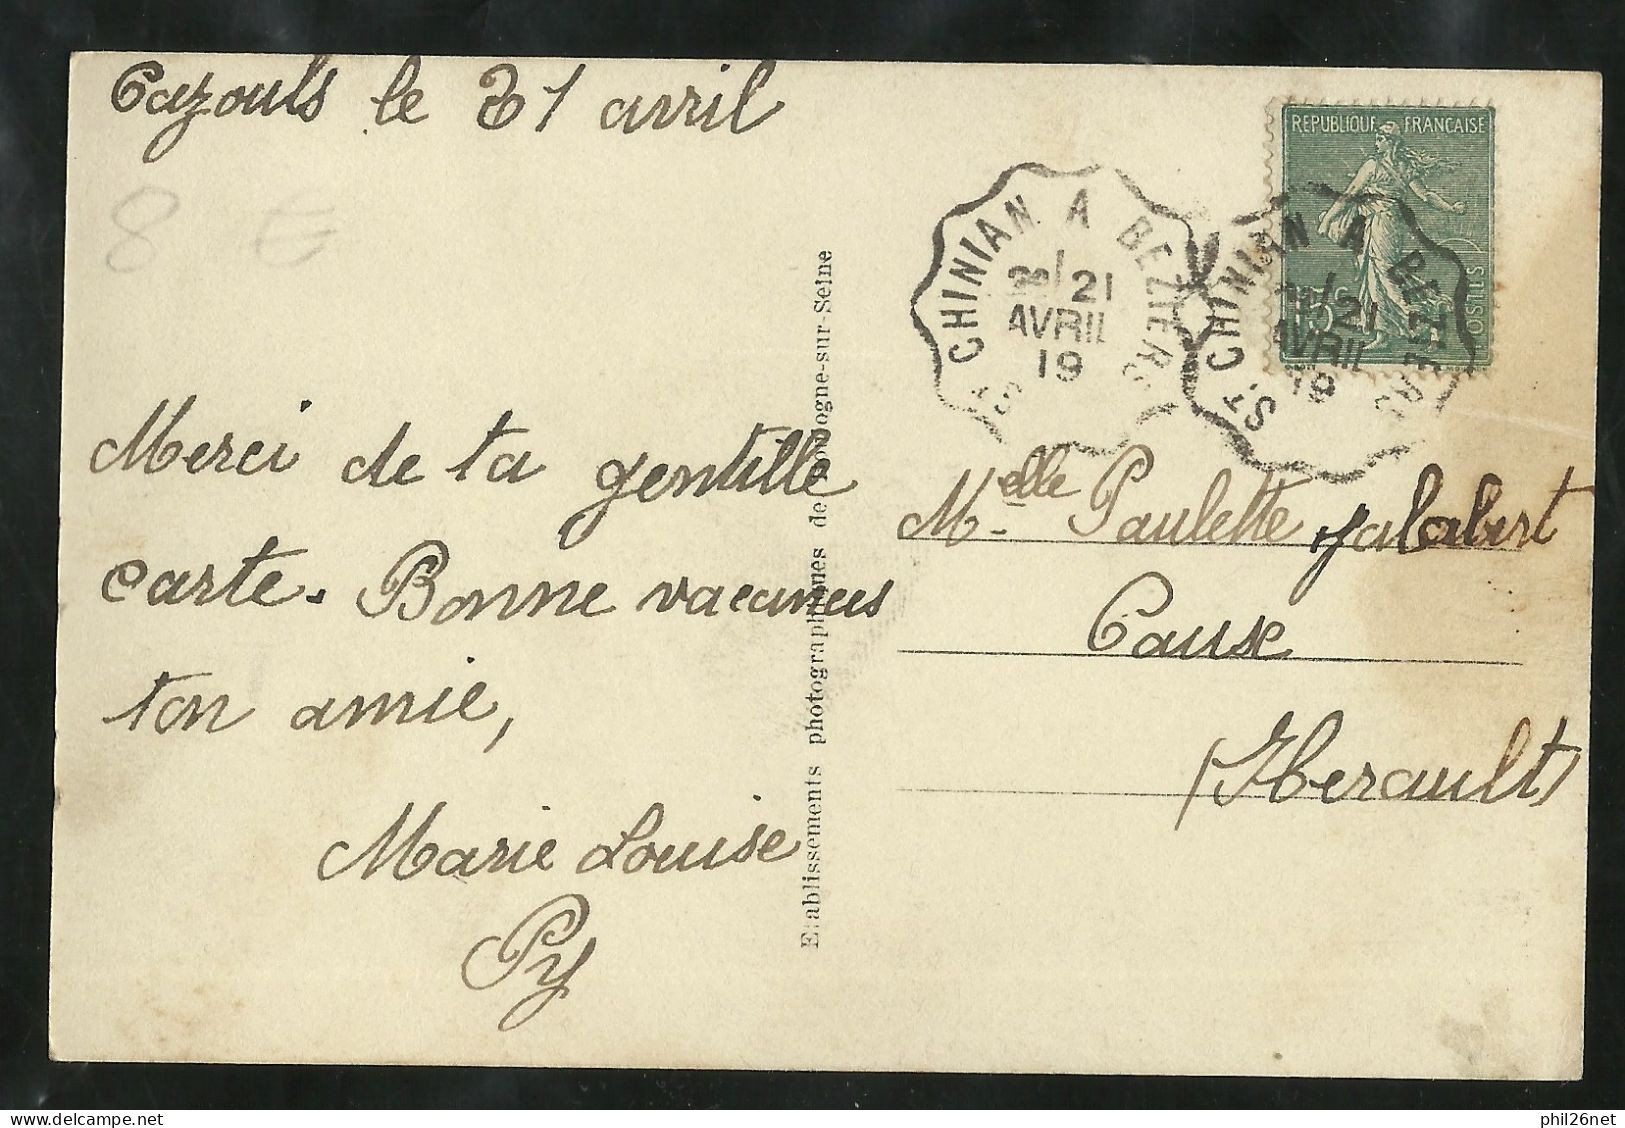 Cazouls le 21 avril
8 €
REPUBLIQUE FRANÇAISE
POSTES
ST CHINIAN A BEZIERS
21
AVRIL
19
ST CHINIAN A BEZIERS
21
AVRIL
19
Merci de ta gentille
carte. Bonne vacances
ton amie,
Marie Louise
Py
Etablissements photographiques de Boulogne-sur-Seine
Melle Paulette Jalabert
Caux
(Herault)
phil26net